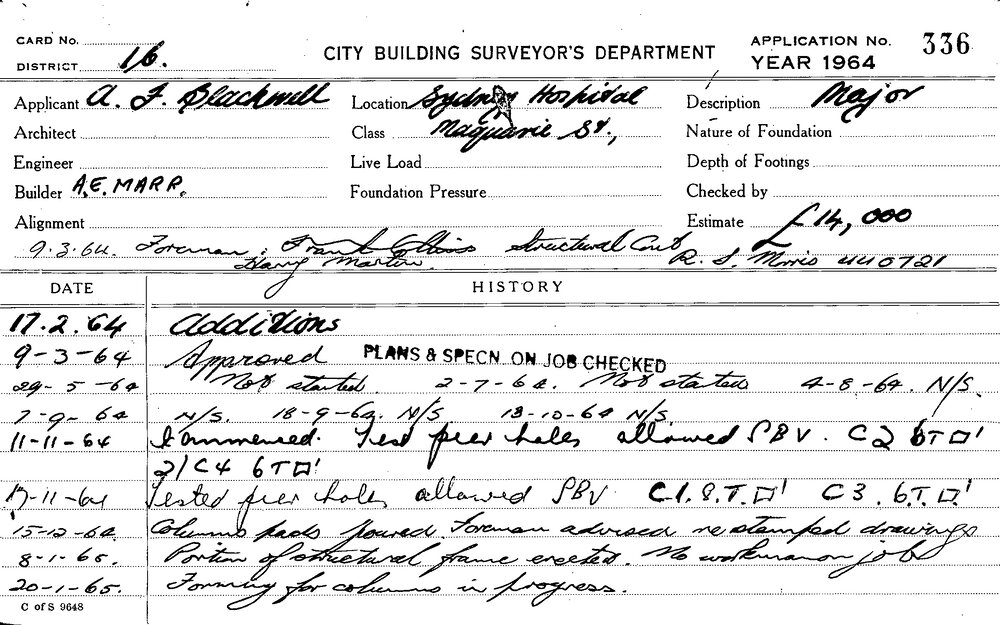 CARD No.
DISTRICT 16.
CITY BUILDING SURVEYOR'S DEPARTMENT
APPLICATION No. 336
YEAR 1964
Applicant A. F. Blackwell
Location Sydney Hospital
Description Major
Architect
Class Maquarie St.,
Nature of Foundation
Engineer
Live Load
Depth of Footings
Builder A.E. MARR.
Foundation Pressure
Checked by
Alignment
Estimate £14,000
9.3.64. Foreman: Frank Collins Structural Cert
Harry Martin. R. S. Morris 440721
DATE HISTORY
17.2.64 Additions
9-3-64 Approved PLANS & SPECN. ON JOB CHECKED
29-5-64 Not started 2-7-64. Not started 4-8-64. N/S.
7-9-64 N/S. 18-9-64. N/S 13-10-64 N/S.
11-11-64 Commenced. Test pier holes allowed SBV. C2 6T□'
2/C4 6T□'
17-11-64 Tested pier holes allowed SBV C1. 8.T.□' C3. 6T.□'
15-12-64. Columns pads poured Foreman advised re stamped drawings
8-1-65. Portion of structural frame erected. No workman on job
20-1-65. Forming for columns in progress.
C of S 9648